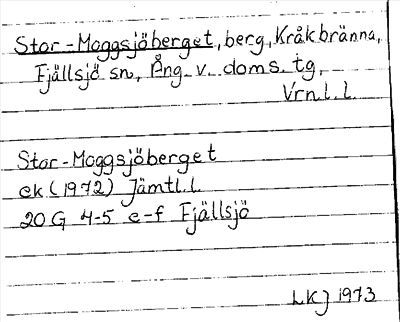 Stor-Moggsjöberget, berg, Kråkbränna,
Fjällsjö sn, Ång. v. doms. tg,
Vrn.l. l.
Stor-Moggsjöberget
ek (1972) Jämtl.l.
20 G 4-5 e-f Fjällsjö
LKJ 1973